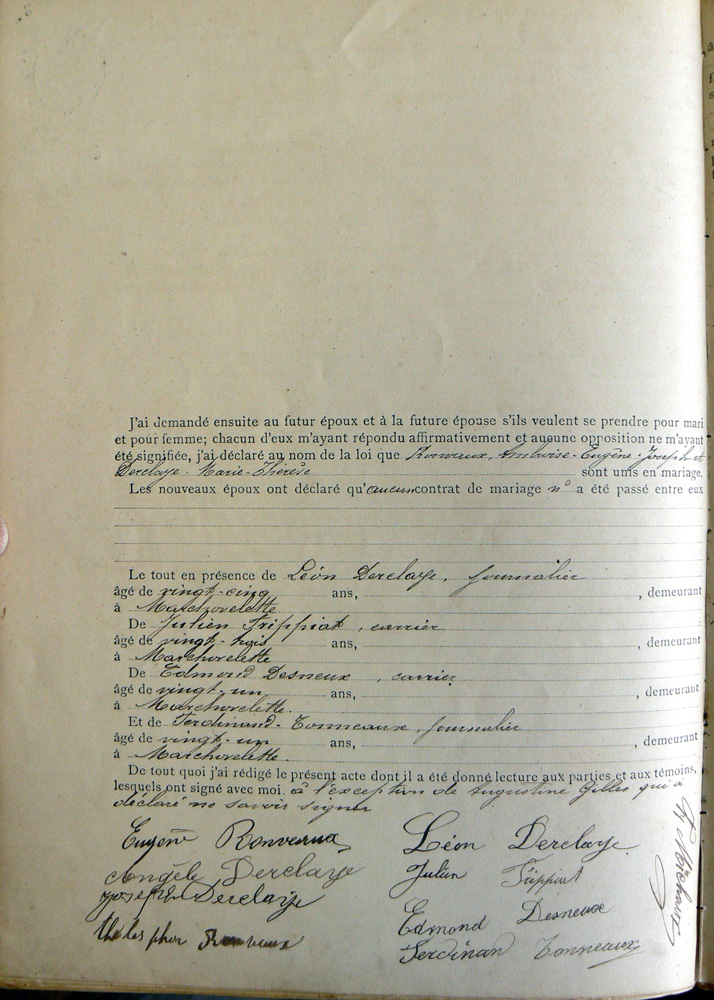 J'ai demandé ensuite au futur époux et à la future épouse s'ils veulent se prendre pour mari
et pour femme; chacun d'eux m'ayant répondu affirmativement et aucune opposition ne m'ayant
été signifiée, j'ai déclaré au nom de la loi que Ronveaux, Ambroise-Eugène-Joseph et
Derclaye Marie-Thérèse sont unis en mariage.
Les nouveaux époux ont déclaré qu'aucun contrat de mariage n' a été passé entre eux
Le tout en présence de Léon Derclaye, journalier
âgé de vingt-cinq ans, , demeurant
à Marchovelette
De Julien Frippiat, carrier
âgé de vingt-trois ans, , demeurant
à Marchovelette
De Edmond Desneux, carrier
âgé de vingt-un ans, , demeurant
à Marchovelette.
Et de Ferdinand Tonneaux, journalier
âgé de vingt-un ans, , demeurant
à Marchovelette.
De tout quoi j'ai rédigé le présent acte dont il a été donné lecture aux parties et aux témoins,
lesquels ont signé avec moi, à l'exception de Augustine Gilles qui a
déclaré ne savoir signer
Eugène Ronveaux Léon Derclaye
Angèle Derclaye Julien Frippiat
Joseph Derclaye
Edmond Desneux
Thelesphor Ronveaux
Ferdinan Tonneaux